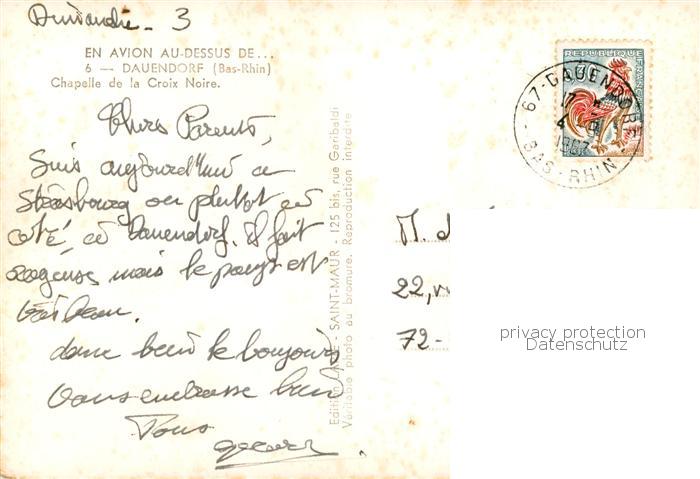 Dimanche - 3
EN AVION AU-DESSUS DE...
6 — DAUENDORF (Bas-Rhin)
Chapelle de la Croix Noire.
Chers Parents,
Suis aujourd'hui a
Strasbourg ou plutot en
coté, a Dauendorf. il fait
orageuse mais le pays est
très beau.
donc bien le bonjours
Vous embrasse bien
Tous
gerard
Edition - SAINT-MAUR - 125 bis, rue Garibaldi
Véritable photo au bromure. Reproduction interdite
REPUBLIQUE FRANÇAISE
67-DAUENDORF
17 H
4
1967
BAS-RHIN
M.
22,
72-
privacy protection
Datenschutz